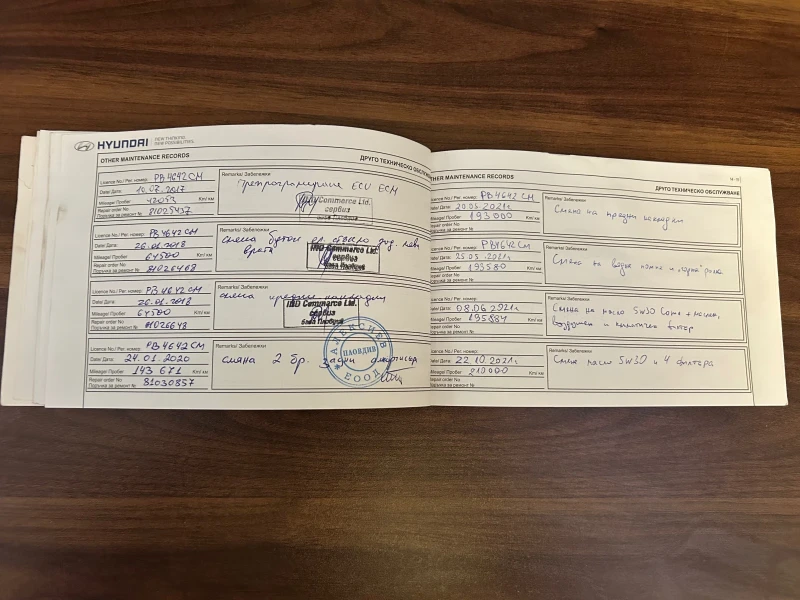 HYUNDAI
NEW THINKING.
NEW POSSIBILITIES.
OTHER MAINTENANCE RECORDS
ДРУГО ТЕХНИЧЕСКО ОБСЛУЖВАНЕ
Licence No./ Рег. номер: PB 4642 CM
Date/ Дата: 10.07.2017
Mileage/ Пробег Km/ км
Repair order No.
Поръчка за ремонт № 81025457
Remarks/ Забележки
Препрограмиране ECU ECM
Commerce Ltd.
сервиз
база Пловдив
Licence No./ Рег. номер: PB 4642 CM
Date/ Дата:
Mileage/ Пробег 64500 Km/ км
Repair order No.
Поръчка за ремонт № 81026468
Remarks/ Забележки
смяна бутон ел. стъкло лява
врата
IND Commerce Ltd.
сервиз
база Пловдив
Licence No./ Рег. номер: PB 4642 CM
Date/ Дата:
Mileage/ Пробег 64500 Km/ км
Repair order No.
Поръчка за ремонт №
Remarks/ Забележки
смяна предни накладки
IND Commerce Ltd.
сервиз
база Пловдив
Licence No./ Рег. номер: PB 4642 CM
Date/ Дата: 24.01.2020
Mileage/ Пробег 143 671 Km/ км
Repair order No.
Поръчка за ремонт № 81030857
Remarks/ Забележки
смяна 2 бр. задни
АЛЕКСИЕВ
ПЛОВДИВ
ЕООД
OTHER MAINTENANCE RECORDS
ДРУГО ТЕХНИЧЕСКО ОБСЛУЖВАНЕ
Licence No./ Рег. номер: PB 4642 CM
Date/ Дата: 20.05.2021г.
Mileage/ Пробег 193000 Km/ км
Repair order No.
Поръчка за ремонт №
Remarks/ Забележки
Смяна на предни накладки
Licence No./ Рег. номер: PB4642CM
Date/ Дата: 25.05.2021г.
Mileage/ Пробег 193580 Km/ км
Repair order No.
Поръчка за ремонт №
Remarks/ Забележки
Смяна на водна помпа и ролка
Licence No./ Рег. номер:
Date/ Дата: 08.06.2021г.
Mileage/ Пробег 195884 Km/ км
Repair order No.
Поръчка за ремонт №
Remarks/ Забележки
Смяна на масло 5W30 + маслен,
въздушен и филтър
Licence No./ Рег. номер:
Date/ Дата: 22.10.2021г.
Mileage/ Пробег 210000 Km/ км
Repair order No.
Поръчка за ремонт №
Remarks/ Забележки
Смяна масло 5W30 и 4 филтъра